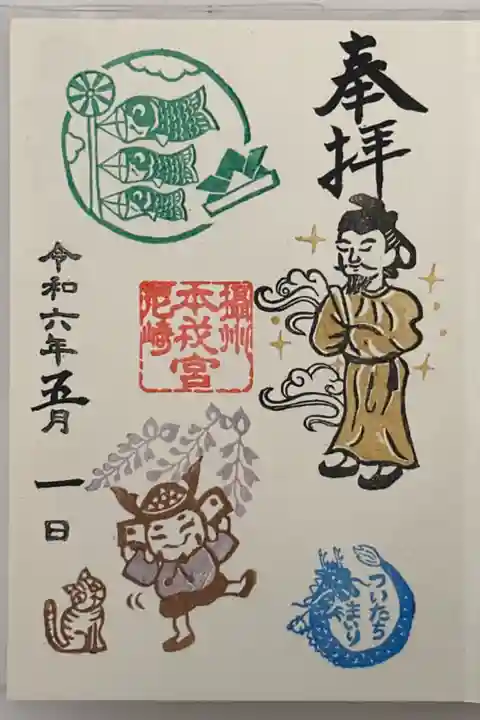 奉拝
摂州
本戎宮
尼崎
令和六年五月一日
ついたち
まいり